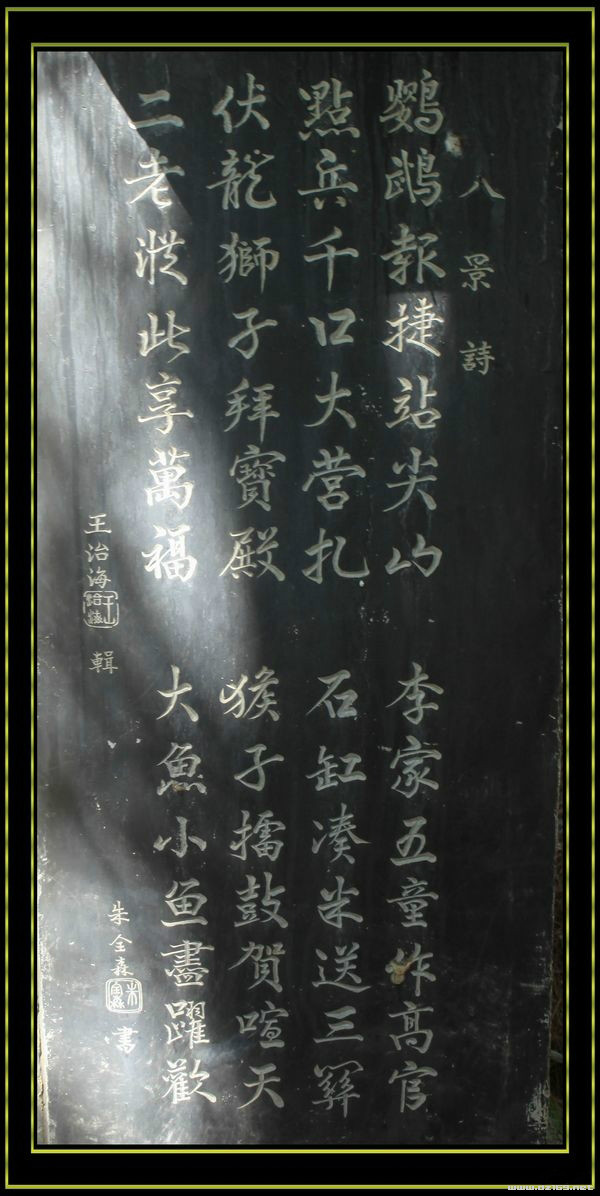 八景詩
鸚鵡報捷站尖山 李家五童作高官
點兵千口大营扎 石缸凑米送三羿
伏龍獅子拜寶殿 猴子擂鼓賀喧天
二老渋此享萬福 大魚小鱼盡躍歡
王治海 輯
朱全森 書